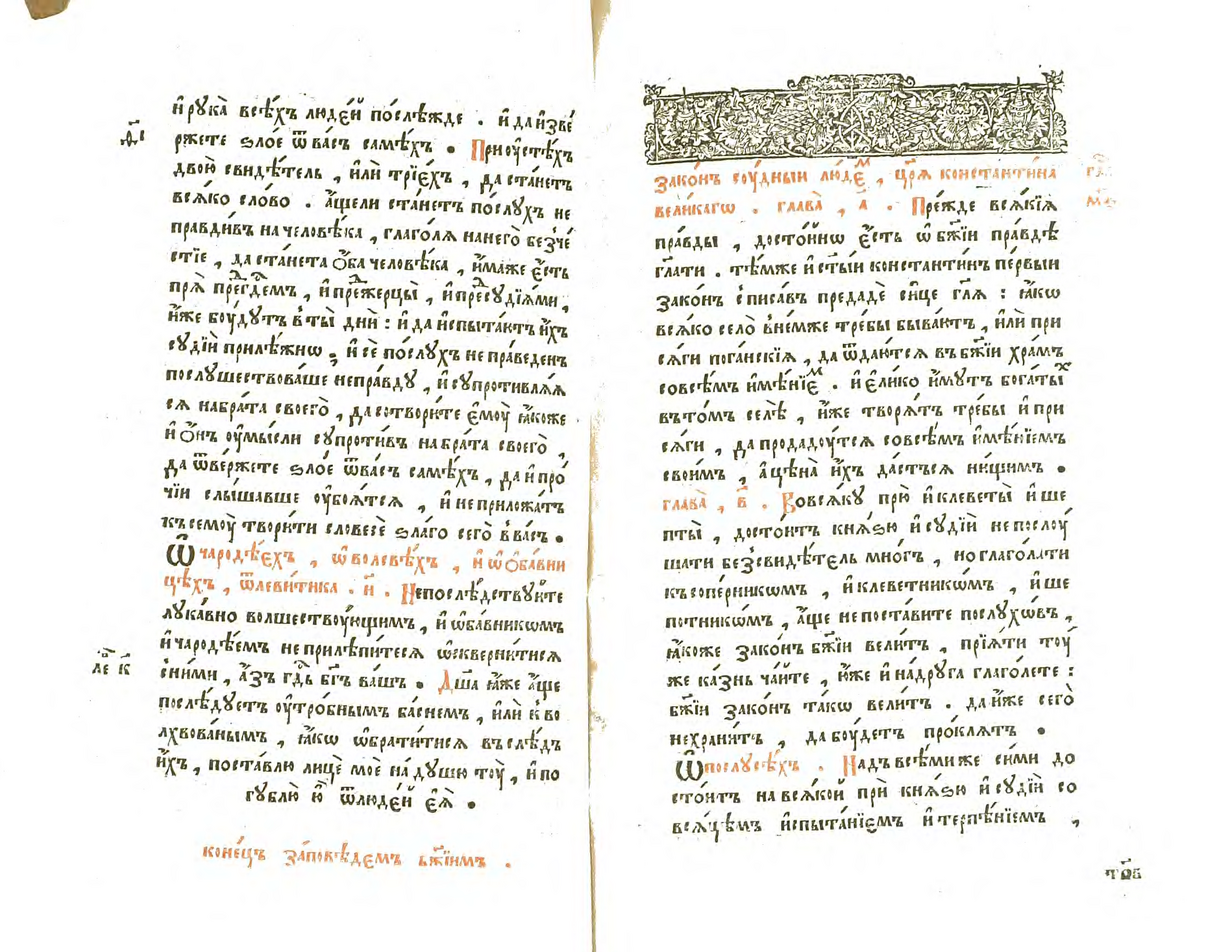 и҆ рꙋка̀ всѣ́хъ люде́й послѣ́жде . и҆ да и҆зве́
рже́те ѕло́е ѿ ва́съ самѣ́хъ . При ᲂу҆стѣ́хъ
двою̀ свидѣ́тель , и҆лѝ трїе́хъ , да ста́нетъ
всѧ́ко сло́во . а҆́щели ста́нетъ по́слꙋхъ не
пра́вдивъ на человѣ́ка , глаго́лѧ нанего̀ безче́
стїе , да ста́нета ѻ҆́ба человѣ́ка , и҆́маже є҆́сть
прѧ̀ пре́гдⷭ҇емъ , и҆ пре́жерцы̀ , и҆ пре́сꙋдїѧ́ми ,
и҆́же бꙋ́дꙋтъ в ты̀ дни̑ : и҆ да и҆спыта́ютъ и҆́хъ
сꙋдїй̀ прилѣ́жнѡ , и҆ сѐ по́слꙋхъ не пра́веденъ
послꙋ́шествоваше непра́вдꙋ , и҆ сꙋпроти́влѧѧ
сѧ на бра́та своего̀ , да сотвори́те є҆мꙋ̀ ꙗ҆́коже
и҆ ѻ҆́нъ ᲂу҆мы́сли сꙋпроти́въ на бра́та своего̀ ,
да ѿве́ржете ѕло́е ѿ ва́съ самѣ́хъ , да и҆ про́
чїи слы́шавше ᲂу҆боѧ́тсѧ , и҆ не приложа́тъ
к семꙋ̀ твори́ти словесѐ ѕла́го сегѡ̀ в ва́съ .
Ѡ чародѣ́ехъ , ѡ҆ волсвѣ́хъ , и҆ ѡ҆ ѻ҆ба́вни
цѣхъ , ѿ леви́тика . и҃ . Непослѣ́дствꙋйте
лꙋка́вно волшествꙋ́ющимъ , и҆ ѡ҆ба́вникѡмъ
и҆ чародѣ́емъ не прилѣпи́тесѧ ѡ҆скверни́тисѧ
с ни́ми , а҆́зъ гдⷭ҇ь бг҃ъ ва́шъ . Дш҃а ꙗ҆́же а҆́ще
послѣ́дꙋетъ ᲂу҆тро́бнымъ ба́снемъ , и҆лѝ к во
лхвова́нымъ , ꙗ҆́кѡ ѡ҆брати́тисѧ въ слѣ́дъ
и҆́хъ , поста́влю лицѐ моѐ на дꙋ́шю тꙋ̀ , и҆ по
гꙋблю̀ ю҆̀ ѿ люде́й є҆ѧ̀ .
коне́цъ за́повѣдемъ бж҃їимъ .
зако́нъ сꙋ́дныи люде́м , цр҃ѧ̀ константи́на
вели́кагѡ . глава̀ , а҃ . Пре́жде всѧ́кїѧ
пра́вды , досто́йнѡ є҆́сть ѡ҆ бж҃їи пра́вдѣ
гл҃ати . тѣ́мже и҆ ст҃ы́и константи́нъ пе́рвыи
зако́нъ списа́въ предадѐ си́це гл҃ѧ : ꙗ҆́кѡ
всѧ́ко село̀ в не́мже тре́бы быва́ютъ , и҆лѝ при
сѧ́ги пога́нскїѧ , да ѿдаю́тсѧ въ бж҃їи хра́мъ
со всѣ́мъ и҆мѣ́нїем . и҆ є҆ли́ко и҆́мꙋтъ бога́тых
въ то́мъ селѣ̀ , и҆́же творѧ́тъ тре́бы и҆ при
сѧ́ги , да продадꙋ́тсѧ со всѣ́мъ и҆мѣ́нїемъ
свои́мъ , а҆ цѣна̀ и҆́хъ да́стьсѧ ни́щимъ .
глава̀ , в҃ . Во всѧ́кꙋ прю̀ и҆ клеветы̀ и҆ ше
пты̀ , досто́итъ кнѧ́ѕю и҆ сꙋдїй̀ не послꙋ́
шати без свидѣ́тель мно́гъ , но глаго́лати
къ сопе́рникѡмъ , и҆ клеветникѡ́мъ , и҆ ше
потникѡ́мъ , а҆́ще не поста́вите послꙋхѡ́въ ,
ꙗ҆́коже зако́нъ бж҃їи вели́тъ , прїѧ́ти тꙋ́
же ка́знь ча́йте , ю҆́же и҆ на дрꙋ́га глаго́лете :
бж҃їи зако́нъ та́кѡ вели́тъ . да и҆́же сегѡ̀
не храни́тъ , да бꙋ́детъ про́клѧтъ .
Ѡ послꙋсѣ́хъ . На́дъ всѣ́ми же си́ми до
сто́итъ на всѧ́кой прѝ кнѧ́ѕю и҆ сꙋдїй̀ со
всѧ́цѣмъ и҆спыта́нїемъ и҆ терпѣ́нїемъ ,